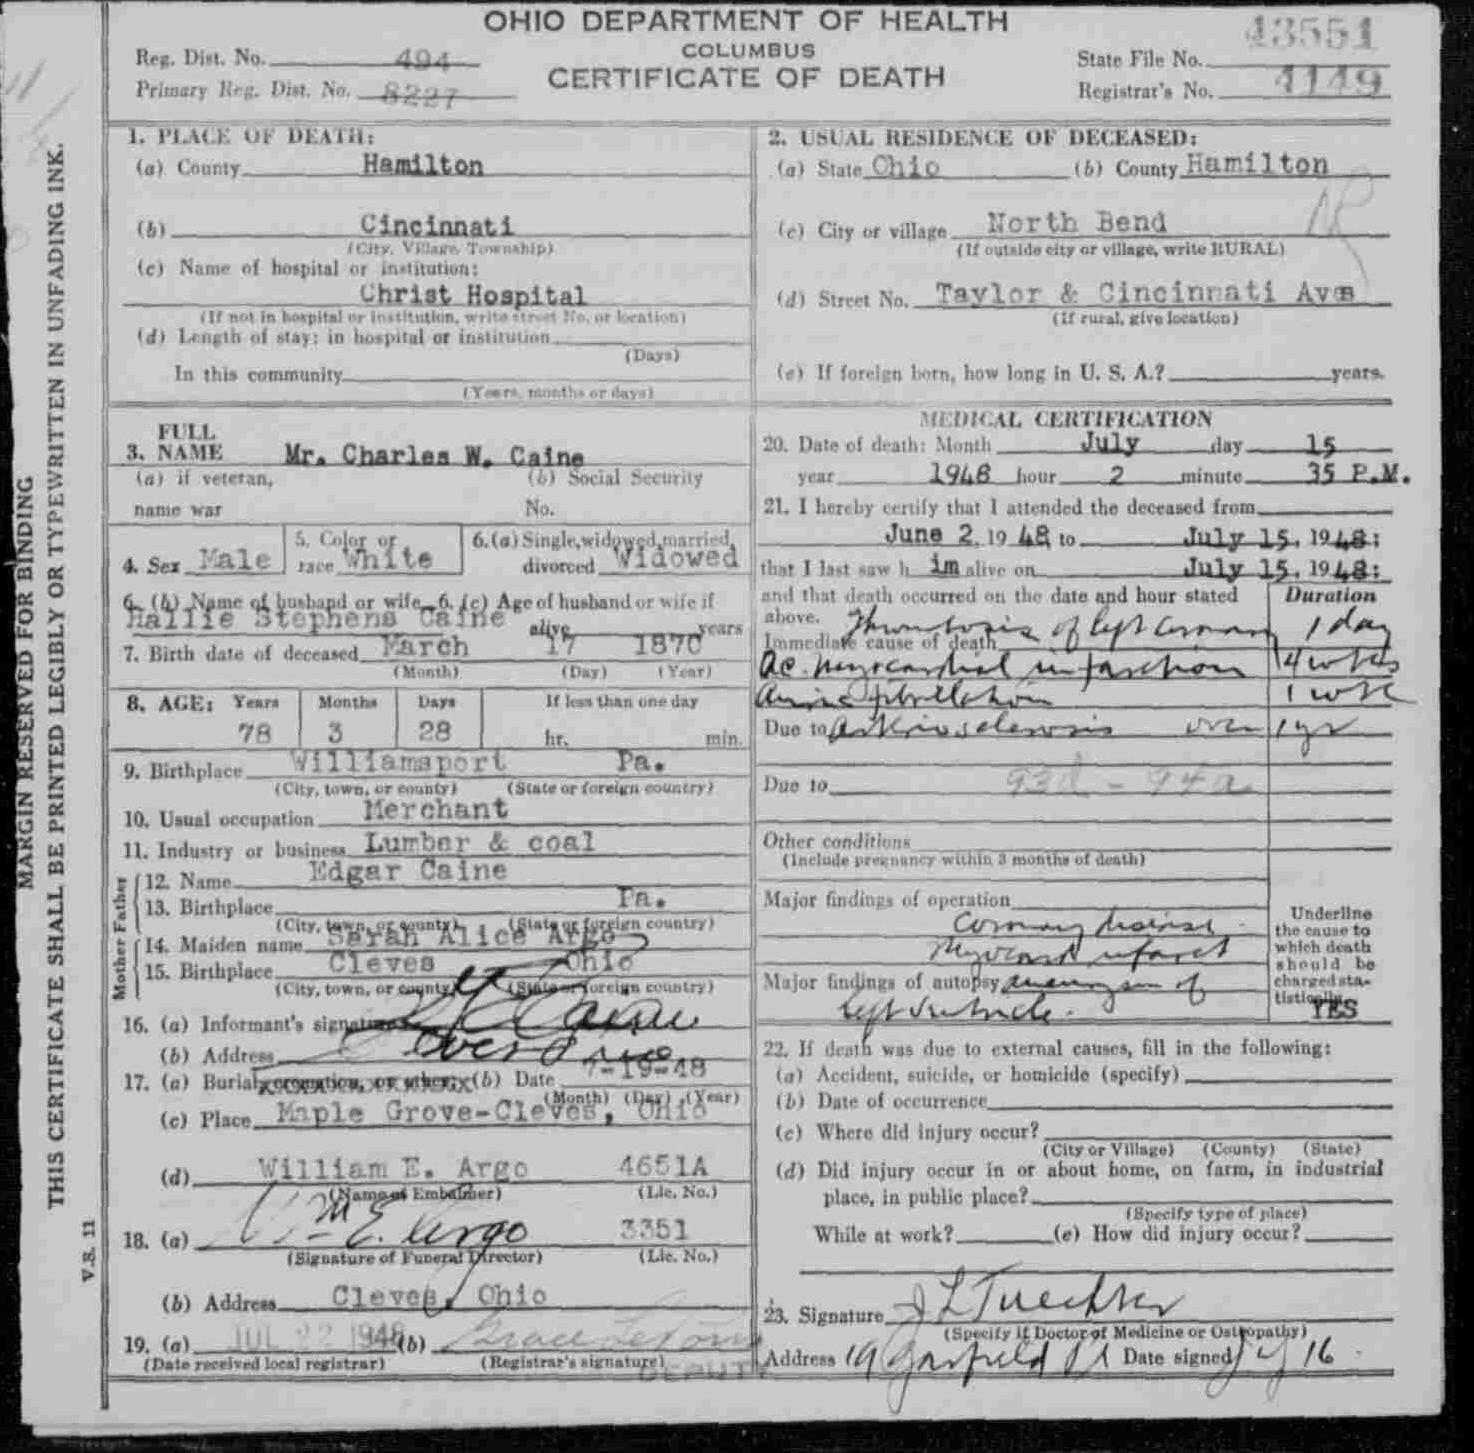 OHIO DEPARTMENT OF HEALTH
COLUMBUS
CERTIFICATE OF DEATH
Reg. Dist. No. 494
Primary Reg. Dist. No. 8227
State File No. 43551
Registrar's No. 4149
MARGIN RESERVED FOR BINDING
THIS CERTIFICATE SHALL BE PRINTED LEGIBLY OR TYPEWRITTEN IN UNFADING INK.
V.S. 11
1. PLACE OF DEATH:
(a) County Hamilton
(b) Cincinnati
(City, Village, Township)
(c) Name of hospital or institution:
Christ Hospital
(If not in hospital or institution, write street No. or location)
(d) Length of stay: in hospital or institution
(Days)
In this community
(Years, months or days)
2. USUAL RESIDENCE OF DECEASED:
(a) State Ohio (b) County Hamilton
(c) City or village North Bend
(If outside city or village, write RURAL)
(d) Street No. Taylor & Cincinnati Aves
(If rural, give location)
(e) If foreign born, how long in U. S. A.? years.
3. FULL NAME Mr. Charles W. Caine
(a) if veteran, name war
(b) Social Security No.
4. Sex Male
5. Color or race White
6. (a) Single, widowed, married, divorced Widowed
6. (b) Name of husband or wife 6. (c) Age of husband or wife if
Hallie Stephens Caine alive years
7. Birth date of deceased March 17 1870
(Month) (Day) (Year)
8. AGE: Years Months Days If less than one day
78 3 28 hr. min.
9. Birthplace Williamsport Pa.
(City, town, or county) (State or foreign country)
10. Usual occupation Merchant
11. Industry or business Lumber & coal
Father
12. Name Edgar Caine
13. Birthplace Pa.
(City, town, or county) (State or foreign country)
Mother
14. Maiden name Sarah Alice Argo
15. Birthplace Cleves Ohio
(City, town, or county) (State or foreign country)
16. (a) Informant's signature Caine
(b) Address
17. (a) Burial, cremation, or other (b) Date 7-19-48
(Month) (Day) (Year)
(c) Place Maple Grove-Cleves, Ohio
(d) William E. Argo 4651A
(Name of Embalmer) (Lic. No.)
18. (a) Wm E. Argo 3351
(Signature of Funeral Director) (Lic. No.)
(b) Address Cleves, Ohio
19. (a) JUL 22 1948 (b) Grace
(Date received local registrar) (Registrar's signature)
DEPUTY
MEDICAL CERTIFICATION
20. Date of death: Month July day 15
year 1948 hour 2 minute 35 P.M.
21. I hereby certify that I attended the deceased from
June 2, 1948 to July 15, 1948;
that I last saw h im alive on July 15, 1948;
and that death occurred on the date and hour stated Duration
above. Thrombosis of left coronary 1 day
Immediate cause of death
Ac. myocardial infarction 4 wks
fibrillation 1 wk
Due to arteriosclerosis over 1 yr
Due to 93d - 94a
Other conditions
(Include pregnancy within 3 months of death)
Major findings of operation
Coronary disease
Myocard infarct
Major findings of autopsy aneurysm of
left ventricle.
Underline
the cause to
which death
should be
charged sta-
tistically.
YES
22. If death was due to external causes, fill in the following:
(a) Accident, suicide, or homicide (specify)
(b) Date of occurrence
(c) Where did injury occur?
(City or Village) (County) (State)
(d) Did injury occur in or about home, on farm, in industrial
place, in public place?
(Specify type of place)
While at work? (e) How did injury occur?
23. Signature
(Specify if Doctor of Medicine or Osteopathy)
Address 19 Garfield Pl Date signed July 16